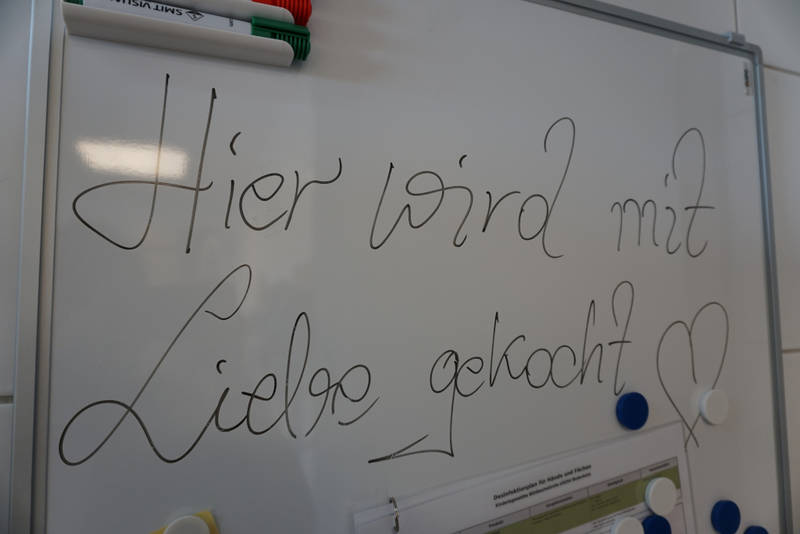 SMIT VISUAL
Hier wird mit
Liebe gekocht
Desinfektionsplan für Hände und Flächen